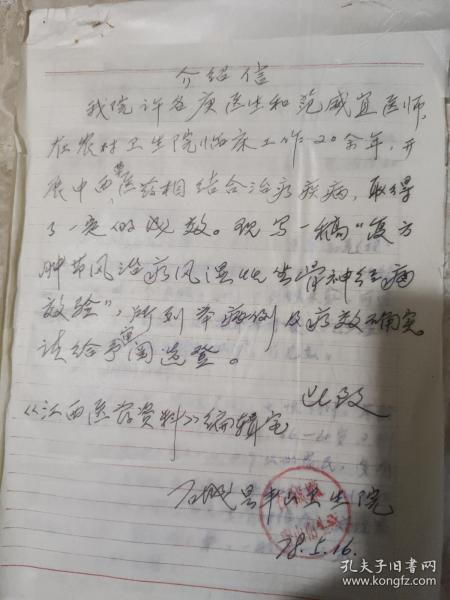 介绍信
我院许各庚医生和范威宜医师,
在农村卫生院临床工作20余年,开
展中西医药相结合治疗疾病,取得
了一定的成效。现写一稿“复方
肿节风治疗风湿性坐骨神经痛
效验”,所列举病例及疗效确实。
请给予审阅选登。
此致
《江西医药资料》编辑室
石城县 山卫生院
78.5.16.
孔夫子旧书网
www.kongfz.com